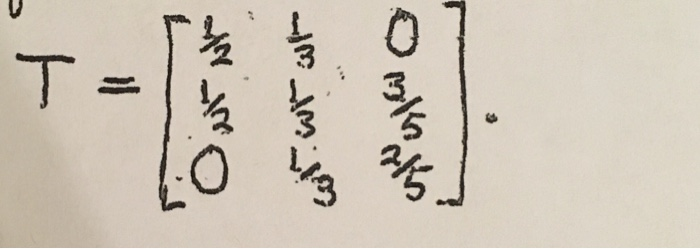 T = [ 1/2 1/3 0
1/2 1/3 3/5
0 1/3 2/5 ].